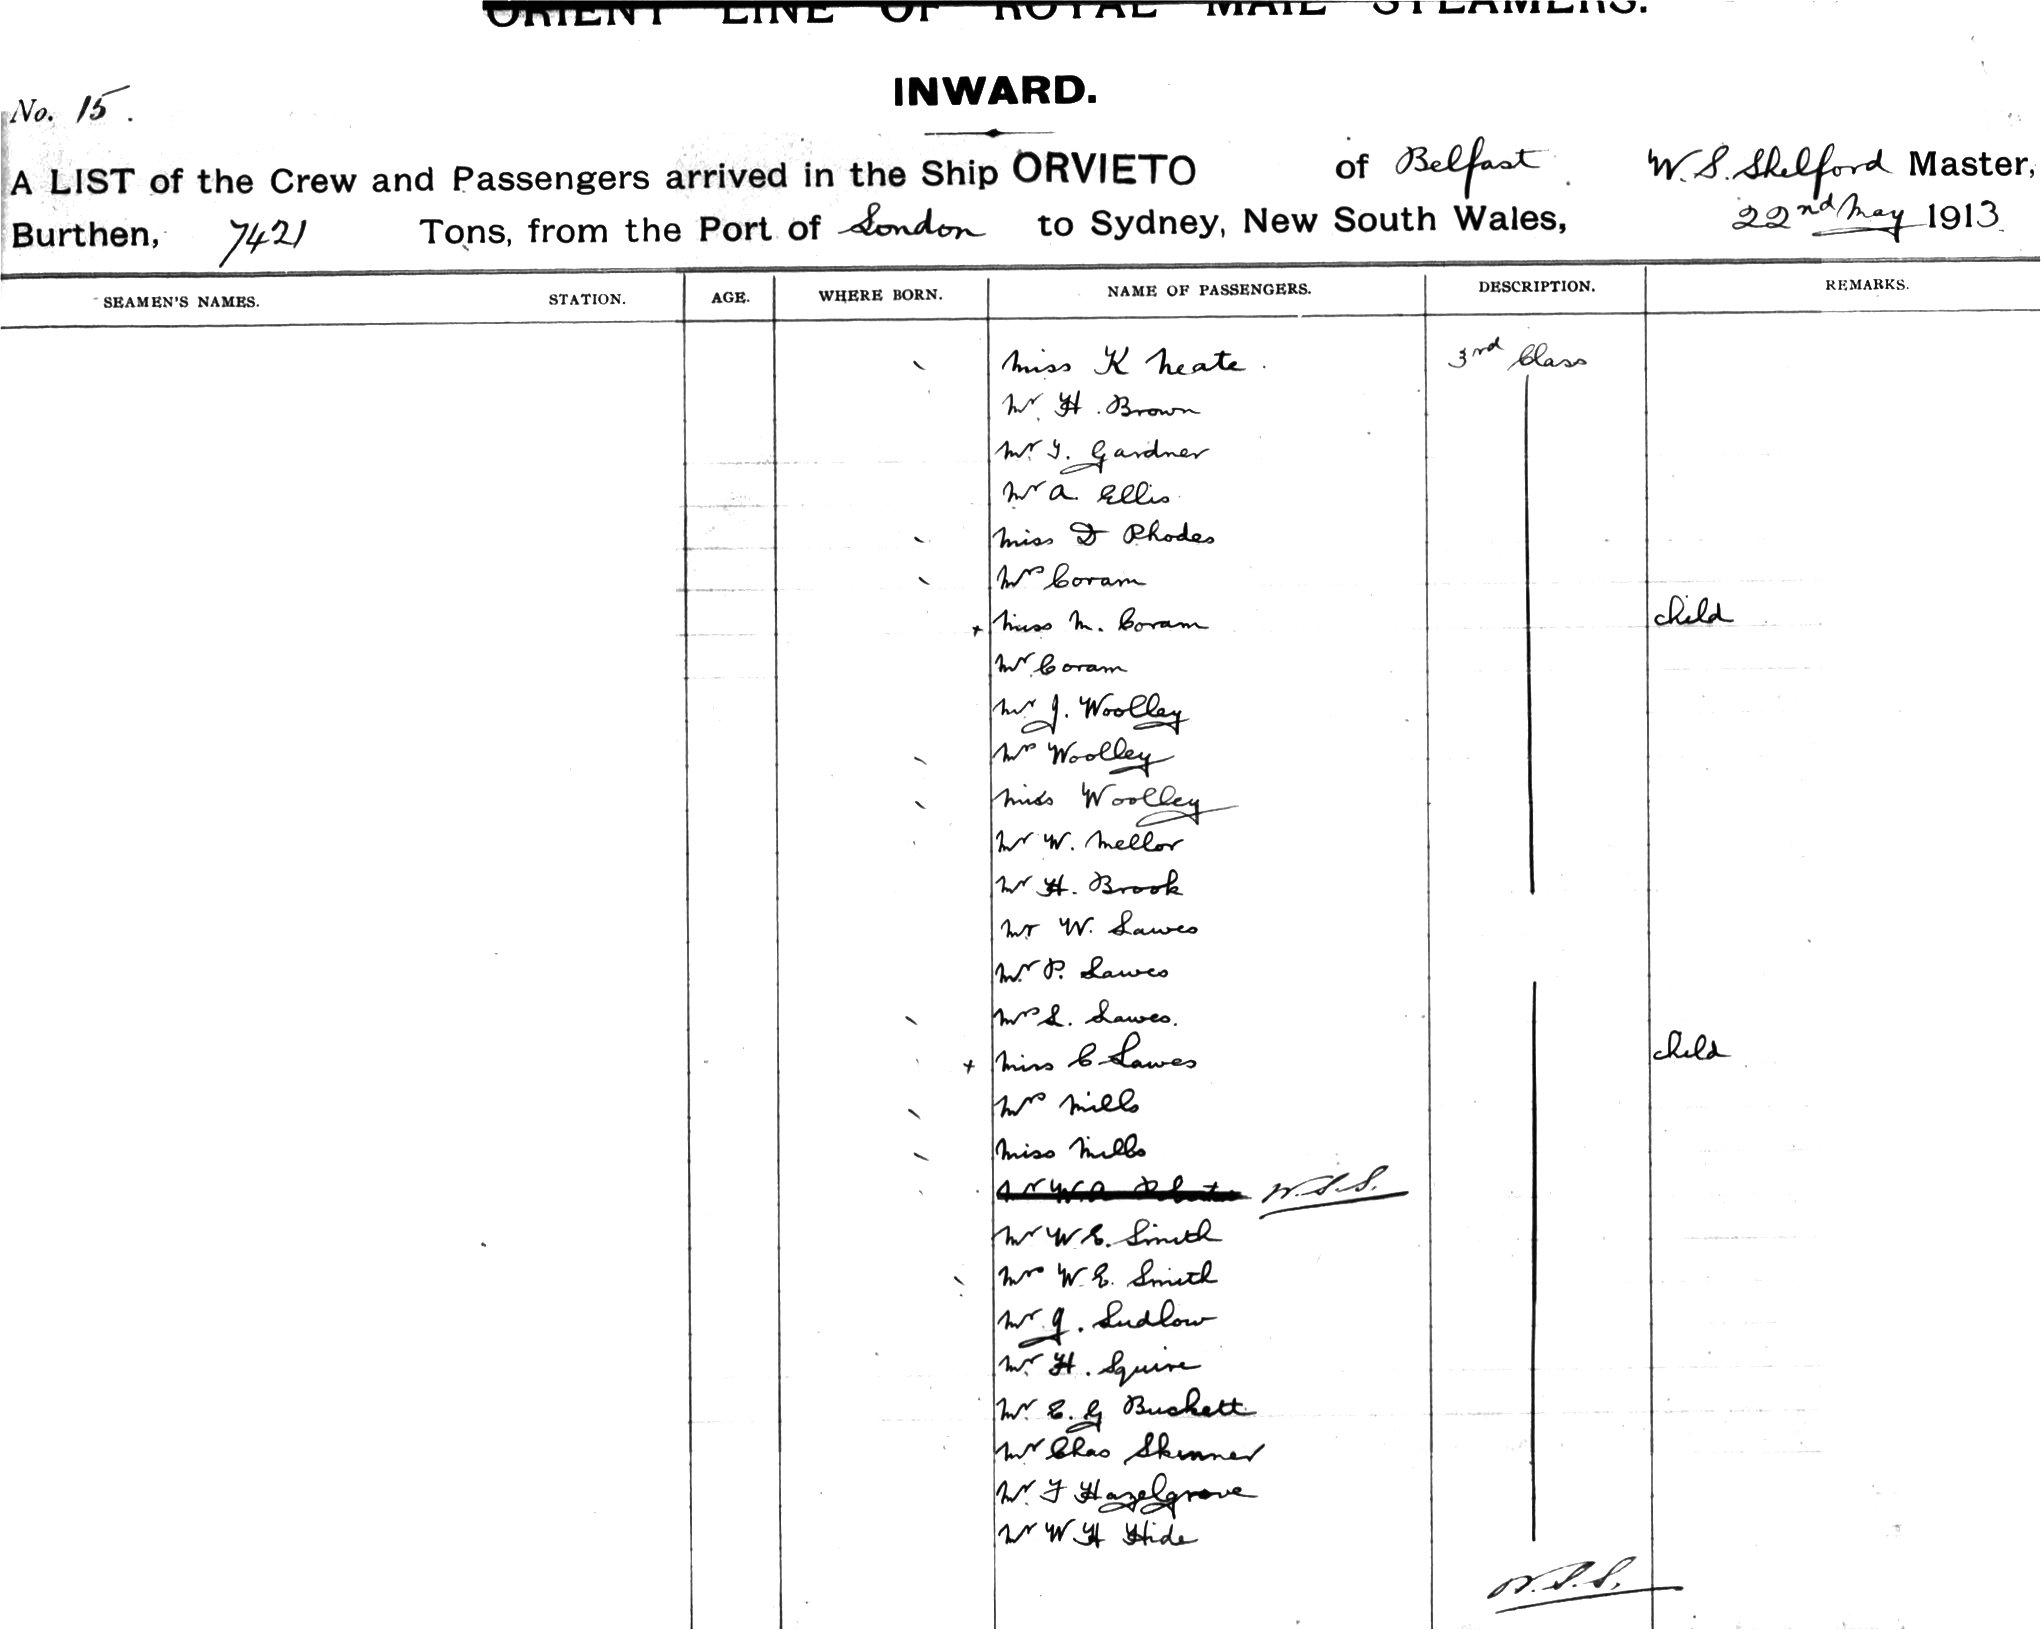 ORIENT LINE OF ROYAL MAIL STEAMERS.
INWARD.
No. 15.
A LIST of the Crew and Passengers arrived in the Ship ORVIETO of Belfast. W. S. Shelford Master,
Burthen, 7421 Tons, from the Port of London to Sydney, New South Wales, 22nd May 1913.
SEAMEN'S NAMES. STATION. AGE. WHERE BORN. NAME OF PASSENGERS. DESCRIPTION. REMARKS.
Miss K Neate. 3rd Class
Mr. H. Brown
Mr. J. Gardner
Mr A. Ellis
Miss D Rhodes
Mrs Coram
x Miss M. Coram child
Mr. Coram
Mr J. Woolley
Mrs Woolley
Miss Woolley
Mr W. Mellor
Mr H. Brook
Mr W. Lawes
Mr. P. Lawes
Mrs L. Lawes.
x Miss C Lawes child
Mrs Mills
Miss Mills
W.S.S.
Mr W E. Smith
Mrs W. E. Smith
Mr. J. Ludlow
Mr. H. Squire
Mr. E. G Buckett
Mr Chas Skinner
Mr. F Hazelgrove
Mr W H Hide
W.S.S.